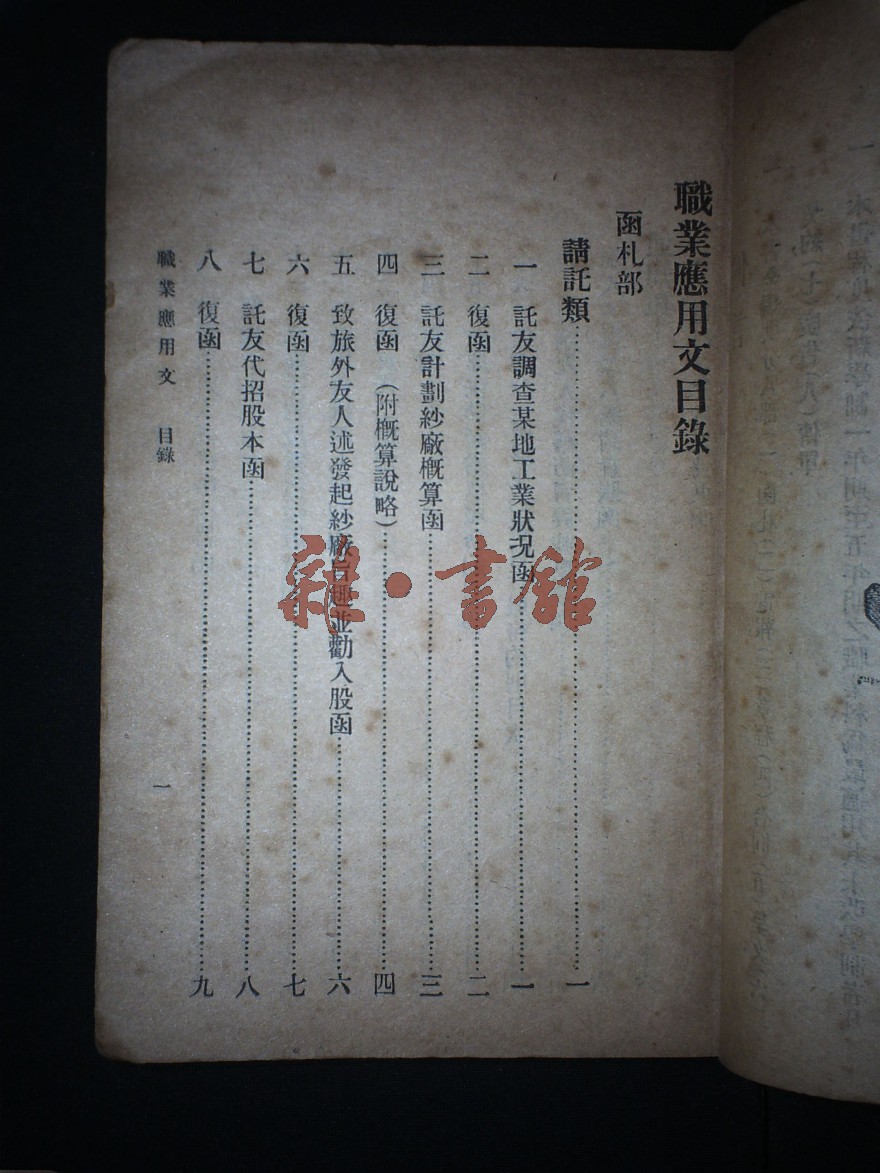 職業應用文目錄
函札部
請託類……一
一 託友調查某地工業狀況函……一
二 復函……二
三 託友計劃紗廠概算函……三
四 復函 (附概算說略)……四
五 致旅外友人述發起紗廠旨趣並勸入股函……六
六 復函……七
七 託友代招股本函……八
八 復函……九
職業應用文 目錄
一
雜·書館